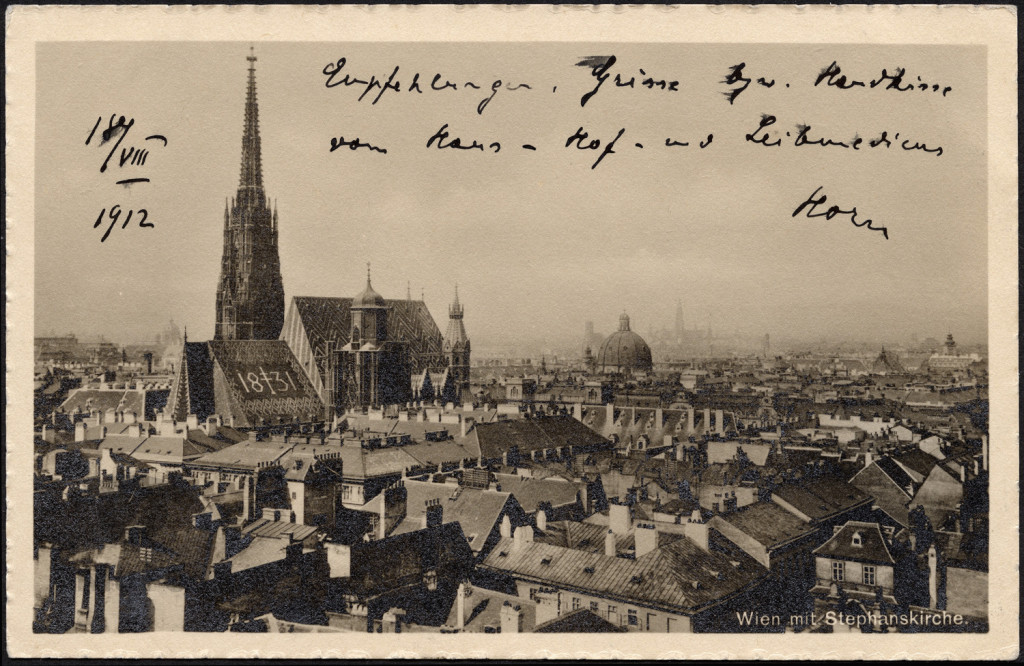 Empfehlungen, Grüsse bzw. Handküsse
vom Haus- Hof- und Leibmedicus
Horn
18/VIII
1912
18†31
Wien mit Stephanskirche.